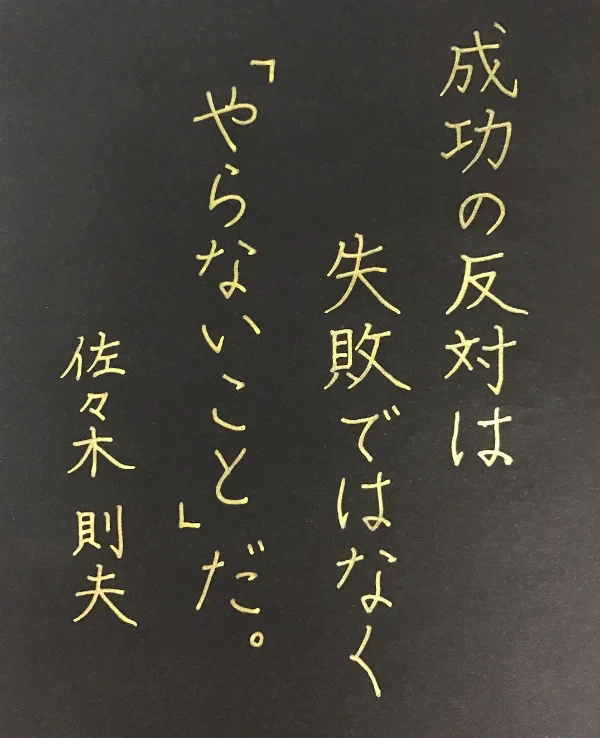 成功の反対は
失敗ではなく
「やらないこと」だ。
佐々木 則夫